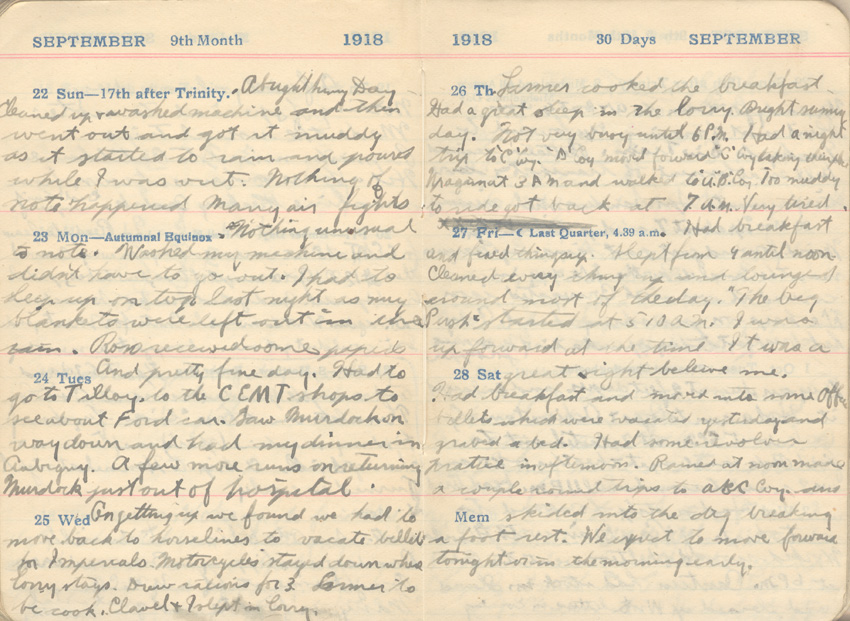 SEPTEMBER 9th Month 1918
22 Sun—17th after Trinity. A bright sunny Day
Cleaned up & washed machine and then
went out and got it muddy
as it started to rain and poured
while I was out. Nothing of
note happened Many air fights
23 Mon—Autumnal Equinox Nothing unusual
to note. Washed my machine and
didn't have to go out. I had to
sleep up on top last night as my
blankets were left out in the
rain. Ross received some papers
24 Tues And pretty fine day. Had to
go to Tilloy. to the CEMT shops to
see about Ford car. Saw Murdock on
way down and had my dinner in
Aubigny. A few more runs on returning
Murdock just out of hospital.
25 Wed On getting up we found we had to
move back to horselines to vacate billets
for Imperials. Motorcycles stayed down where
lorry stays. Drew rations for 3. Larmer to
be cook. Clavel & I slept in lorry.
1918 30 Days SEPTEMBER
26 Th. Larmer cooked the breakfast
Had a great sleep in the lorry. Bright sunny
day. Not very busy until 6 P.M. Had a night
trip to "C" Coy. "D" Coy moved forward "C" Coy taking
at 3 A M and walked to Coy. Too muddy
to ride got back at 7 A.M. Very tired.
27 Fri—☾ Last Quarter, 4.39 a.m. Had breakfast
and Slept from 9 until noon
Cleaned everything up and lounged
around most of the day. "The big
Push" started at 5 10 A.M. I was
up forward at the time It was a
28 Sat great sight believe me.
Had breakfast and moved into some Officer
billets which were vacated yesterday and
grabed a bed. Had some revolver
pratice in afternoon. Rained at noon made
a couple round trips to A B C Coy. and
Mem skided into the dog breaking
a foot rest. We expect to move forward
tonight or in the morning early.